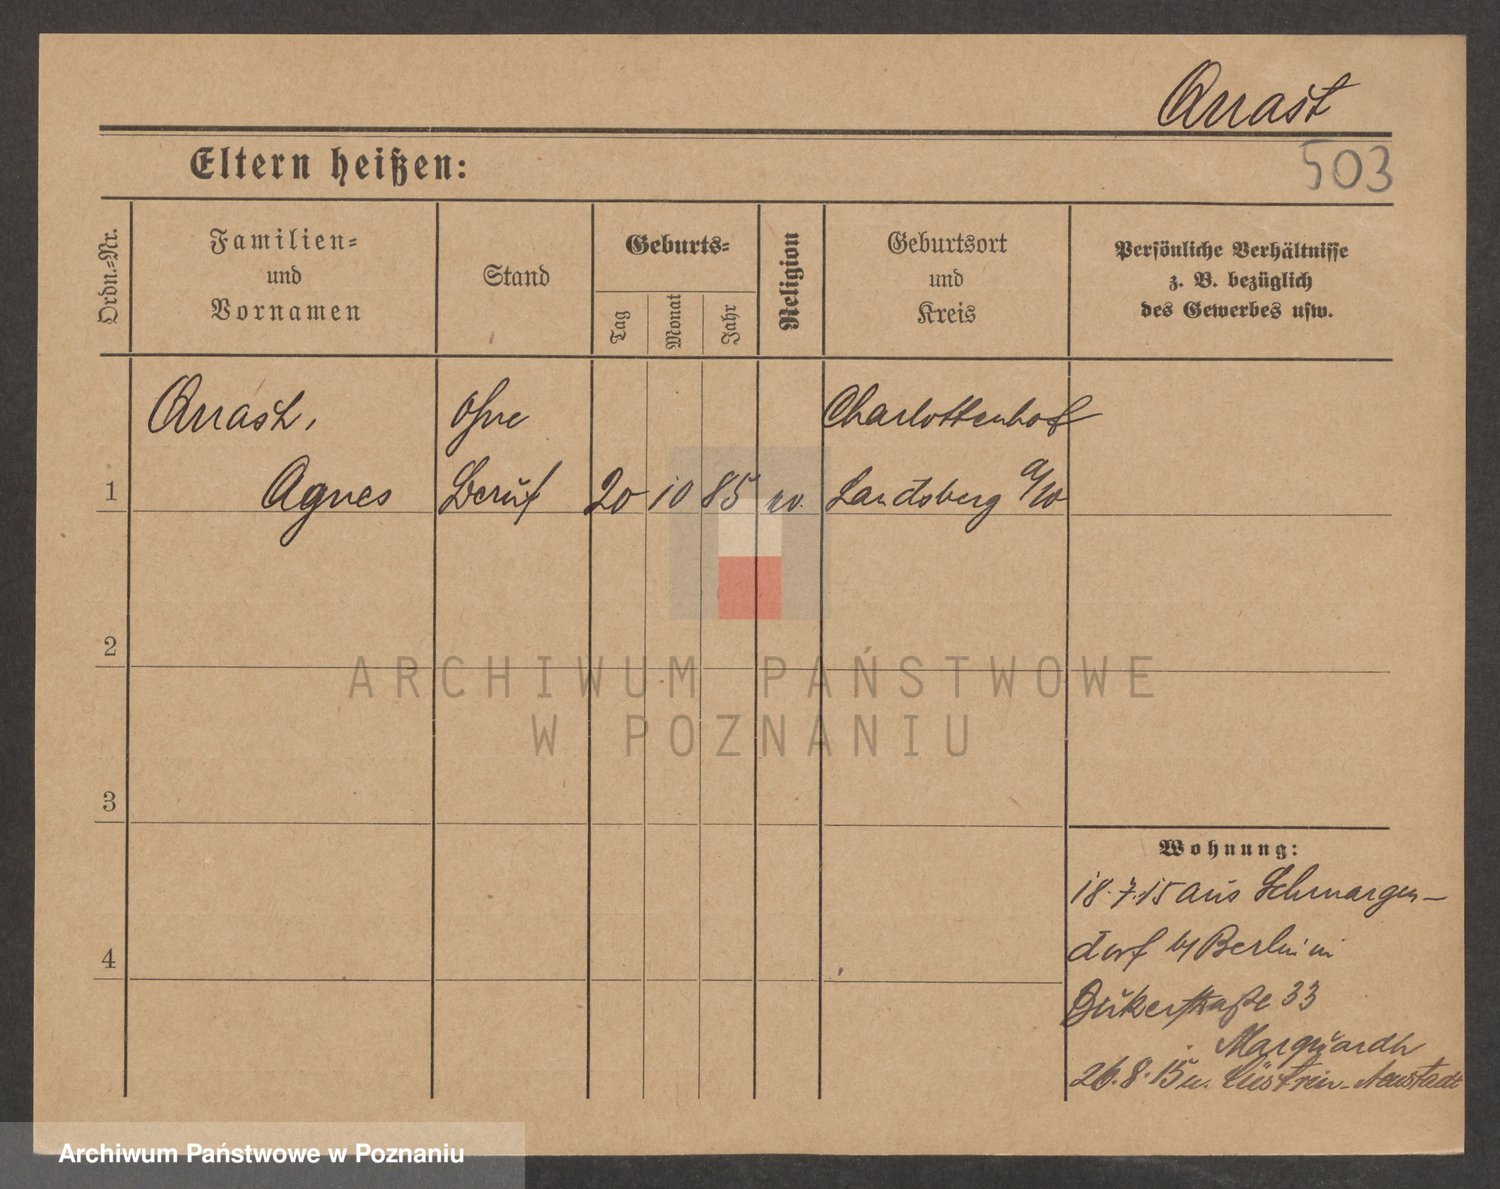 Arrast
503
Eltern heißen:
Ordn.-Nr.
Familien-
und
Vornamen
Stand
Geburts-
Tag
Monat
Jahr
Religion
Geburtsort
und
Kreis
Persönliche Verhältnisse
z. B. bezüglich
des Gewerbes usw.
Arrast,
Ohne
Charlottenhof
1
Agnes
Beruf
20
10
85
ev.
Landsberg a/W
2
3
4
Wohnung:
18.7.15 aus Schmargen-
dorf b/ Berlin in
Bukerstraße 33
Marquardt
26.8.15 n. Cüstrin-Neustadt
ARCHIWUM PAŃSTWOWE
W POZNANIU
Archiwum Państwowe w Poznaniu